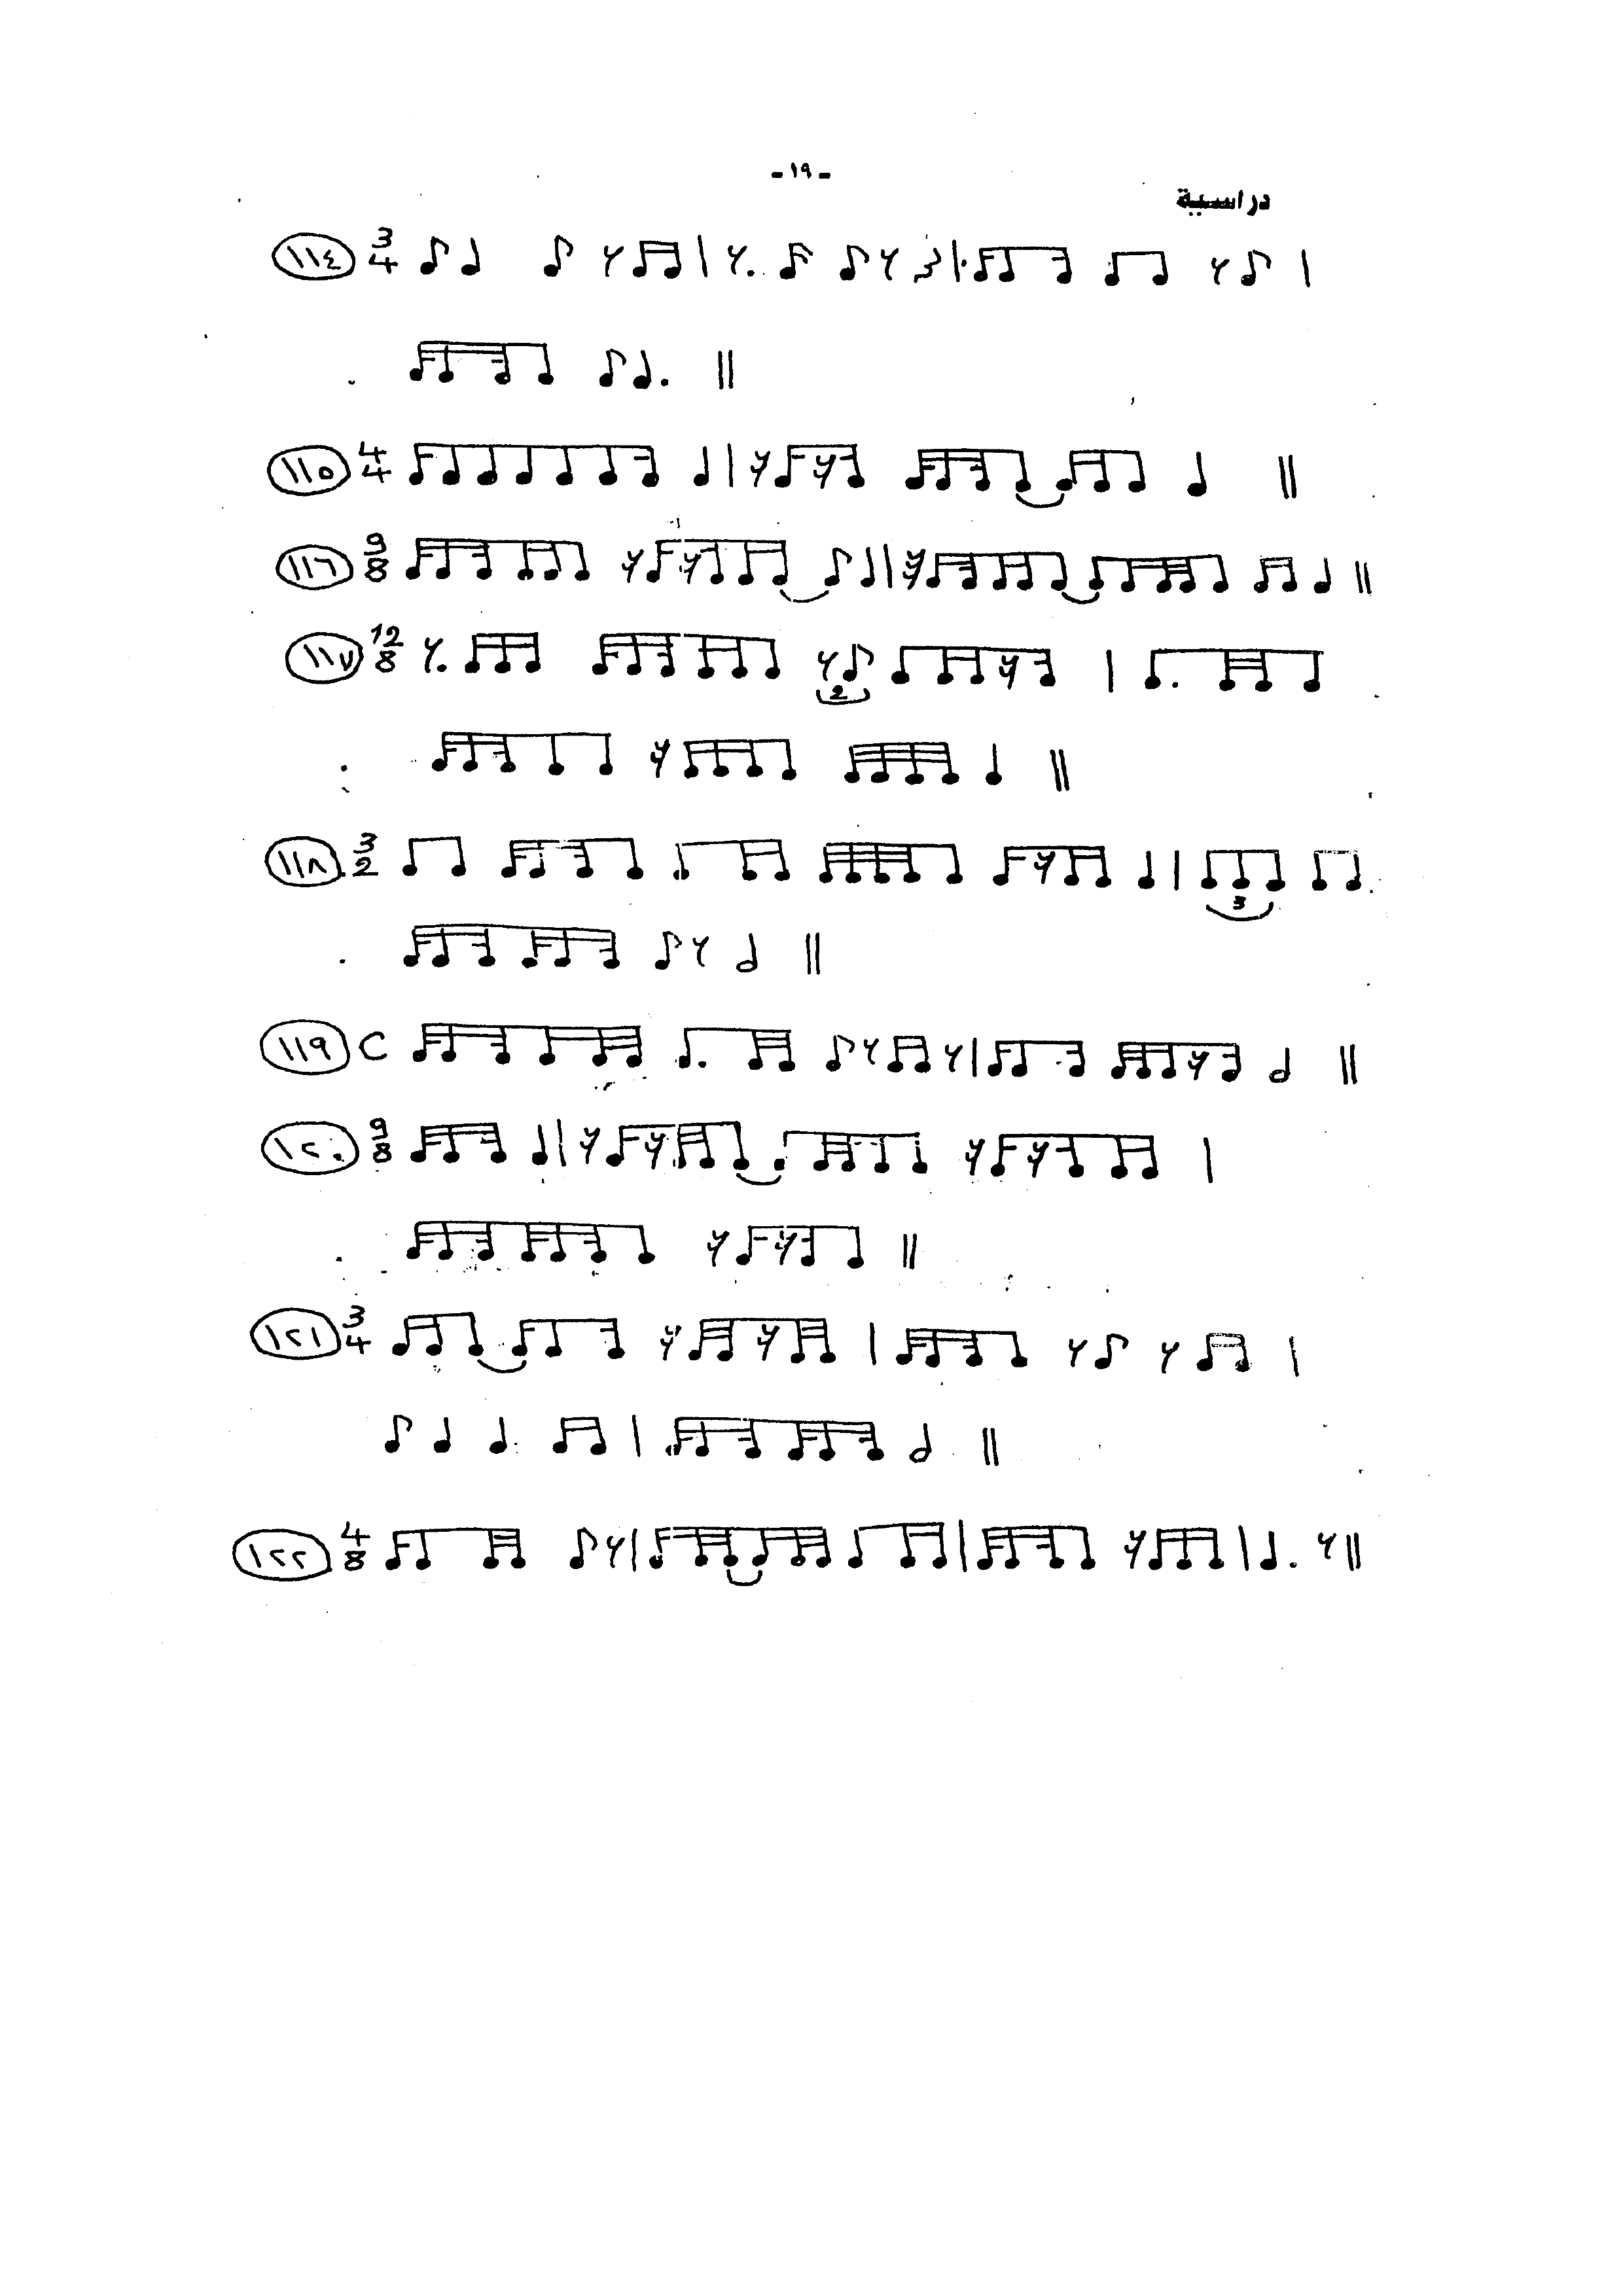 - ١٩ -
دراسية
١١٤ 3/4
١١٥ 4/4
١١٦ 9/8
١١٧ 12/8
2
١١٨ 3/2
3
١١٩ C
١٢٠ 9/8
١٢١ 3/4
١٢٢ 4/8